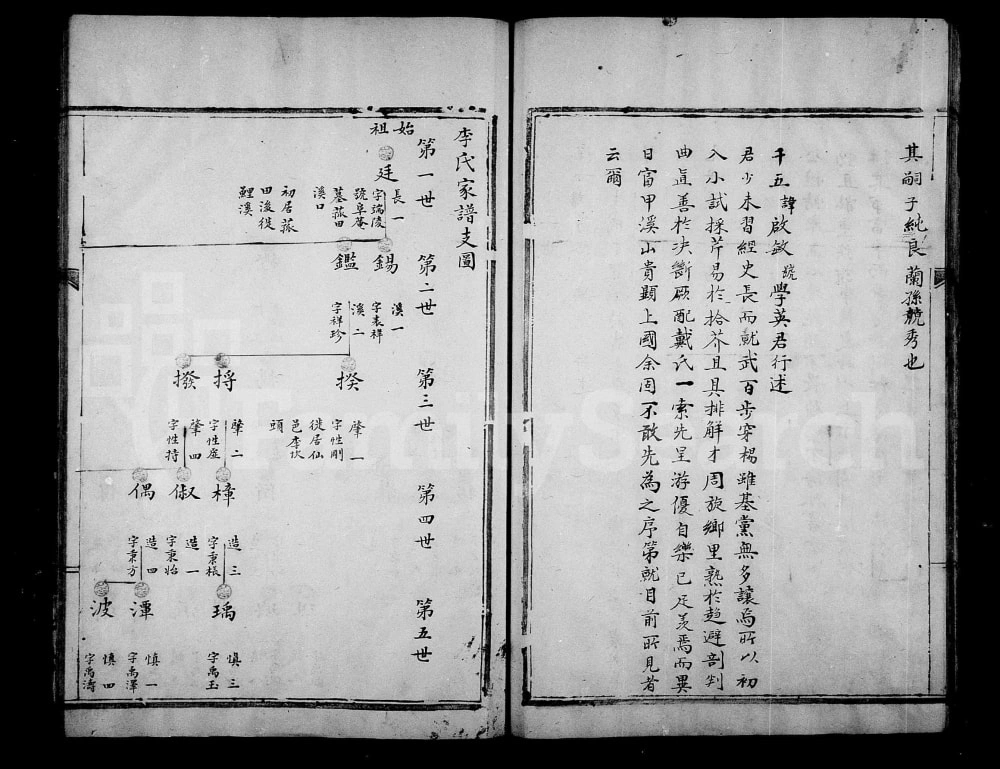 其嗣子純良蘭孫競秀也
千五諱啟敏號學英君行述
君少未習經史長而就武百步穿楊雖基黨無多讓焉所以初
入小試採芹易於拾芥且具排解才周旋鄉里熟於趋避剖判
曲直善於决斷原配戴氏一索先呈游優自樂已足羡焉而異
日富甲溪山貴顯上國余固不敢先為之序第就目前所見者
云爾
李氏家譜支圖
第一世
第二世
第三世
第四世
第五世
始祖
廷
長一
字端陵
號阜菴
墓菰田
溪口
初居菰
田後徙
鯉溪
錫
溪一
字表祥
鑑
溪二
字祥珍
揆
肇一
字性剛
徙居仙
邑李坎
頭
捋
肇二
字性庭
撥
肇四
字性持
樟
造三
字秉棖
俶
造一
字秉怡
偶
造四
字秉方
瑀
慎三
字禹玉
潭
慎一
字禹澤
波
慎四
字禹濤
FamilySearch